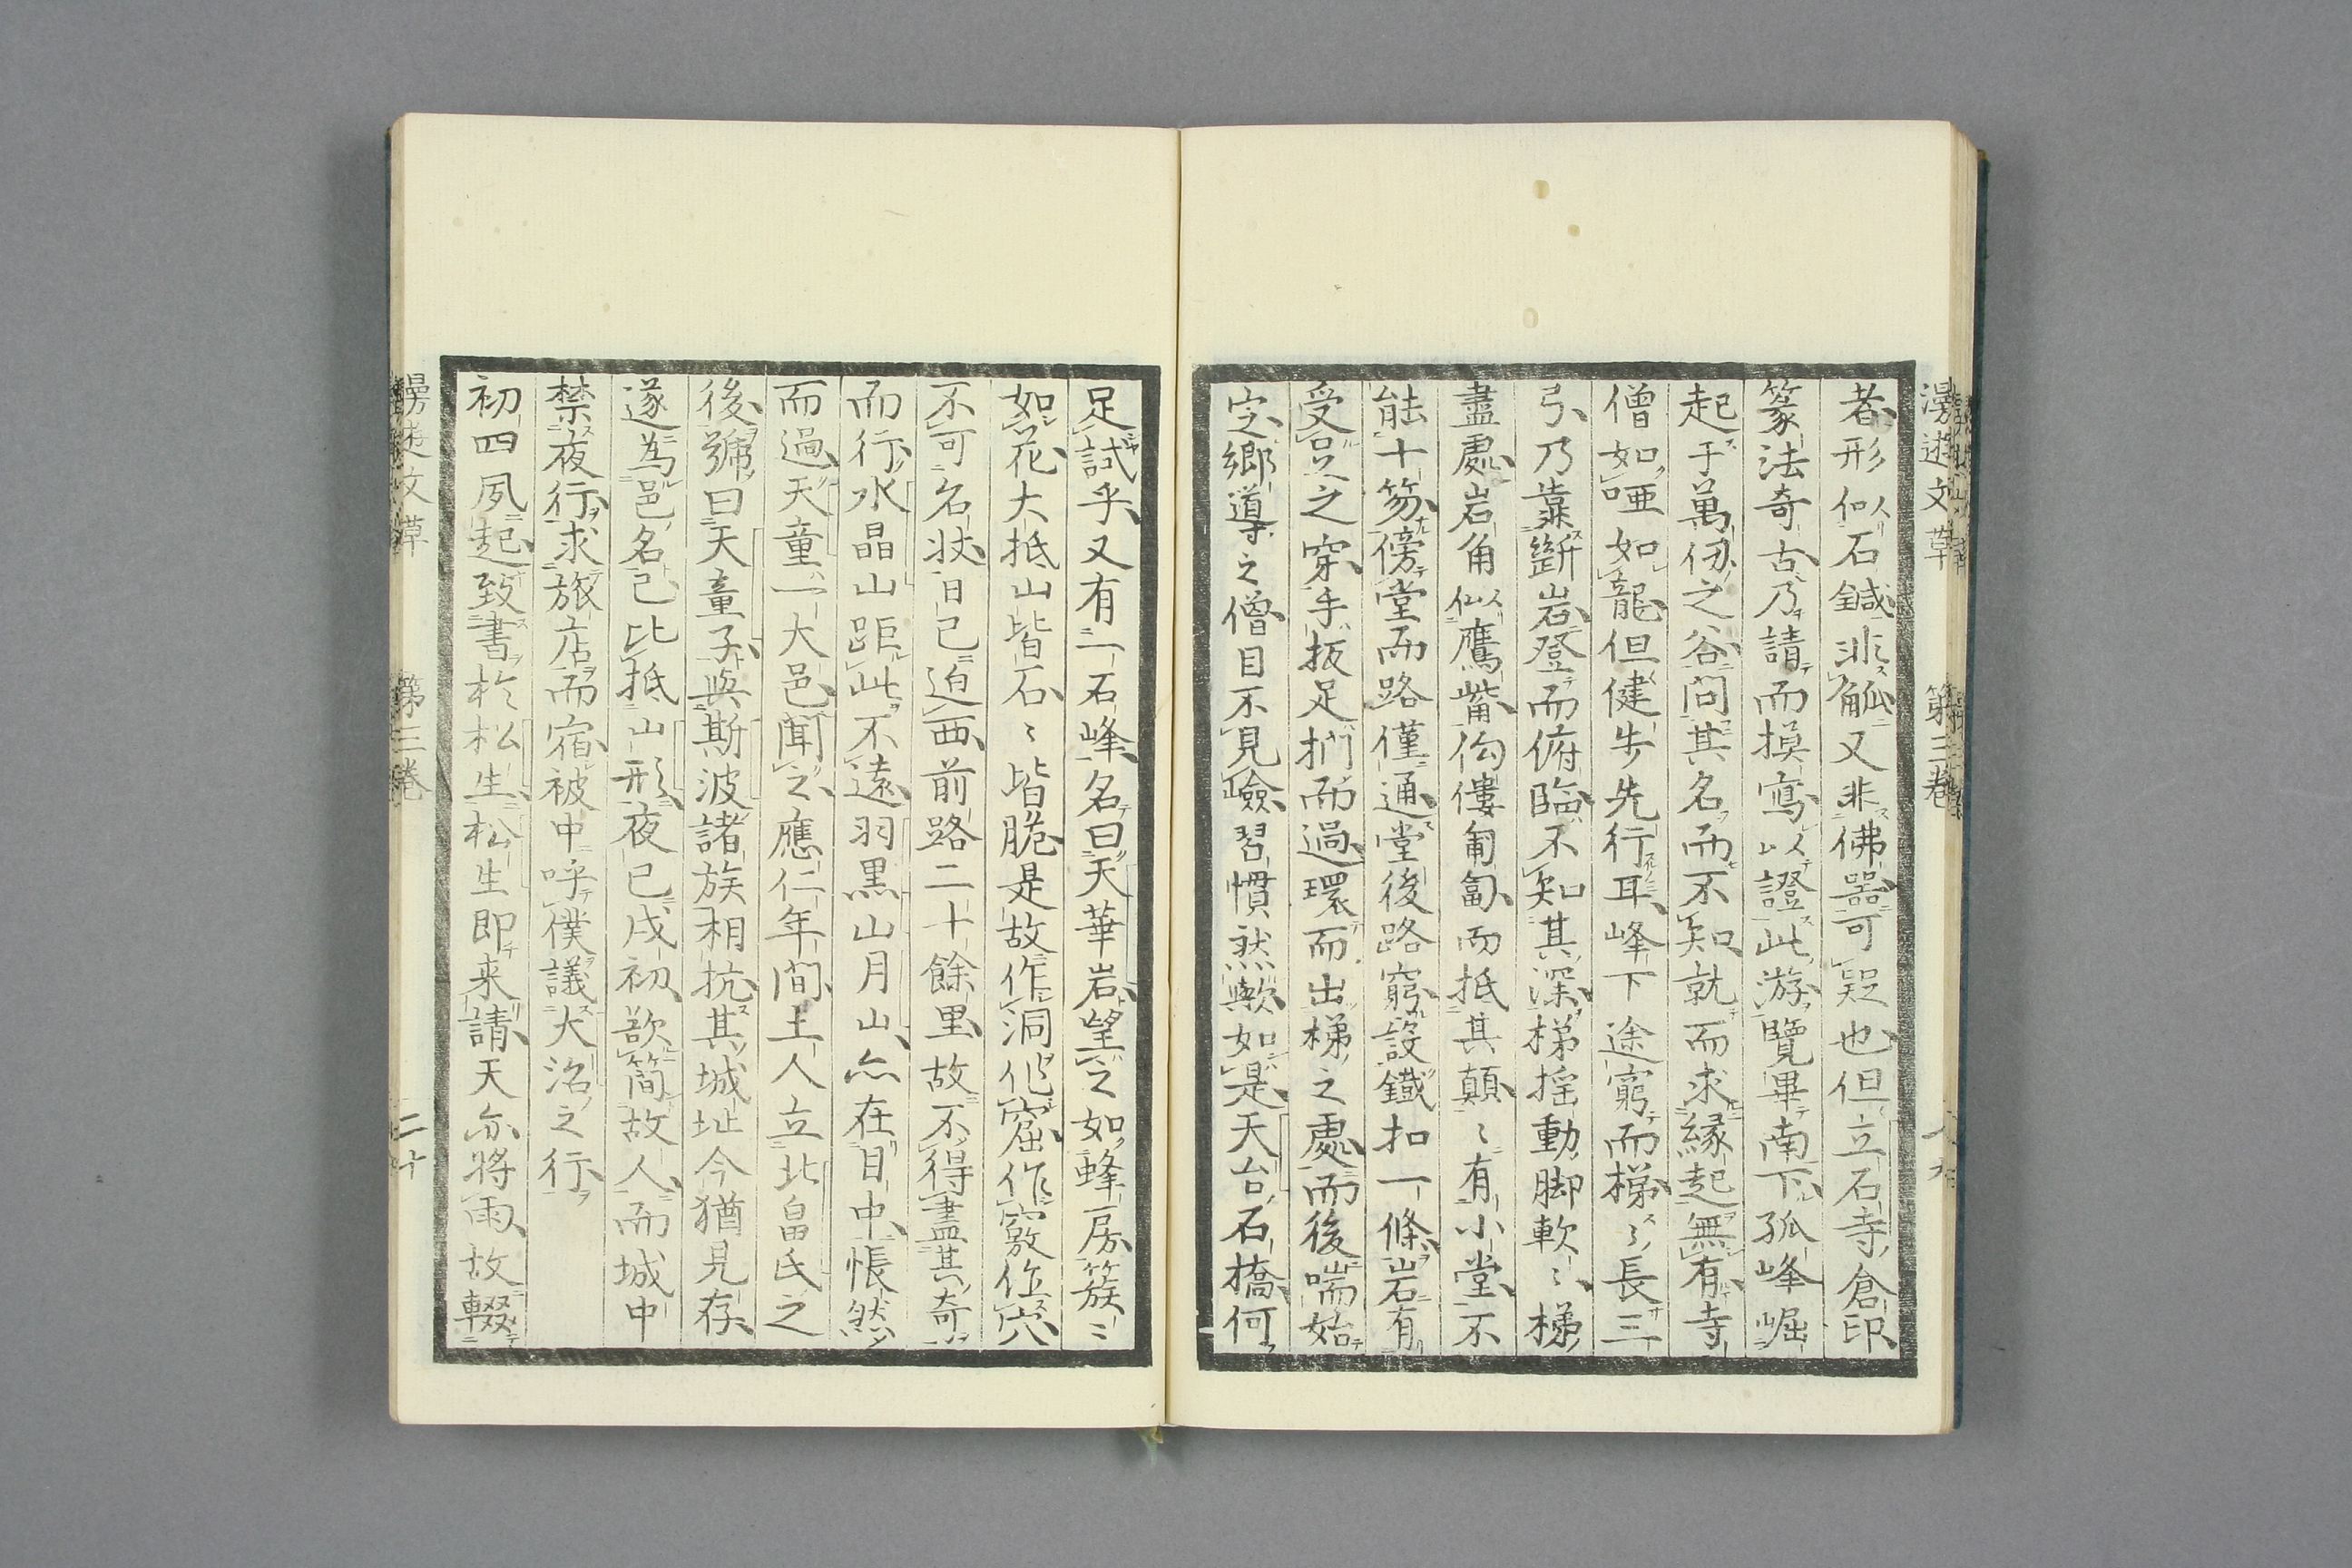 漫遊文草　第三巻
者形似石鍼非觚又非佛器可疑也但立石寺倉印
篆法奇古乃請而摸寫以證此游覽畢南下孤峰崛
起于萬仞之谷問其名而不知就而求縁起無有寺
僧如唖如聾但健步先行耳峰下途窮而梯〻長三
引乃靠斷岩登而俯臨不知其深梯揺動脚軟〻梯
盡處岩角似鷹觜佝僂匍匐而抵其顛〻有小堂不
能十笏傍堂而路僅通堂後路窮設鐵扣一條岩有
受豆之穿手扳足捫而過環而出梯之處而後喘始
定鄉導之僧目不見嶮習慣然歟如是天台石橋何
足試乎又有一石峰名曰天華岩望之如蜂房簇〻
如花大抵山皆石〻皆脆是故作洞作窟作竅作穴
不可名狀日已迫西前路二十餘里故不得盡其奇
而行水晶山距此不遠羽黒山月山亦在目中悵然
而過天童一大邑聞之應仁年間土人立北畠氏之
後號曰天童子與斯波諸族相抗其城址今猶見存
遂為邑名已比抵山形夜已戌初欲簡故人而城中
禁夜行求旅店而宿被中呼僕議大沼之行
初四夙起致書於松生松生即来請天亦將雨故輟
第三巻　二十